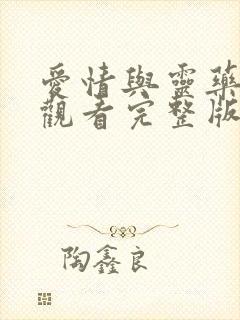 愛情與靈藥
觀看完整版
陶鑫良